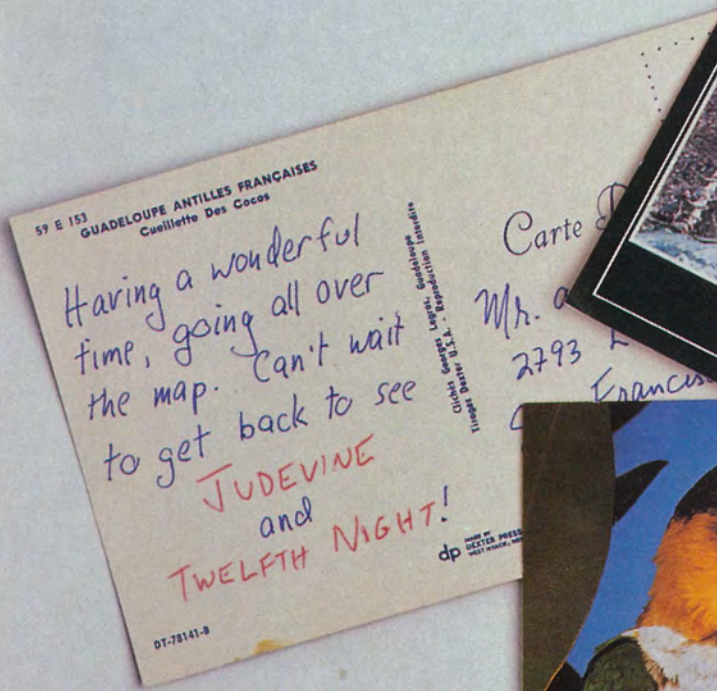 59 E 153
GUADELOUPE ANTILLES FRANÇAISES
Cueillette Des Cocos
Having a wonderful
time, going all over
the map. Can't wait
to get back to see
JUDEVINE
and
TWELFTH NIGHT!
DT-78141-B
Clichés Georges Legros, Guadeloupe
Tirages Dexter U.S.A. - Reproduction Interdite
dp MADE BY
DEXTER PRESS
WEST NYACK,
Carte
Mr.
2793
Francis